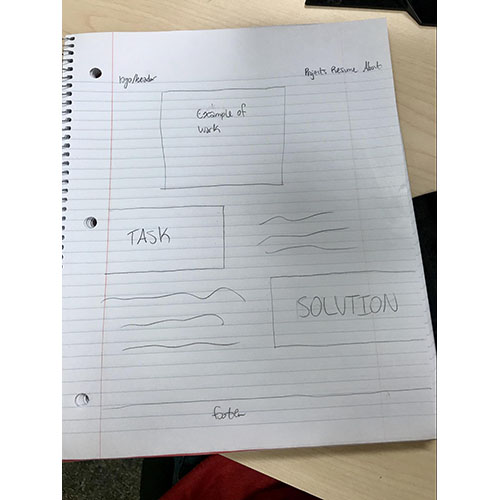 logo/header
Projects Resume About
Example of
work
TASK
SOLUTION
footer